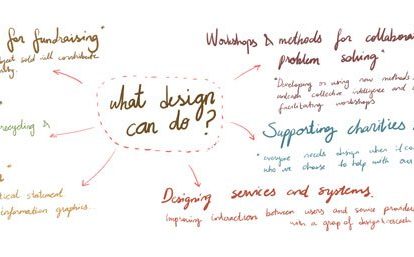 for fundraising"
object sold will contribute
what design
can do?
recycling &
tical statement
information graphics...
Workshops & methods for collabora
problem solving"
"Developing or using new methods
unleash collective intelligence and
facilitating workshops
Supporting charities &
"everyone needs design when it co
who we choose to help with our
Designing services and systems.
Improving interaction between users and service provider
with a grasp of design research